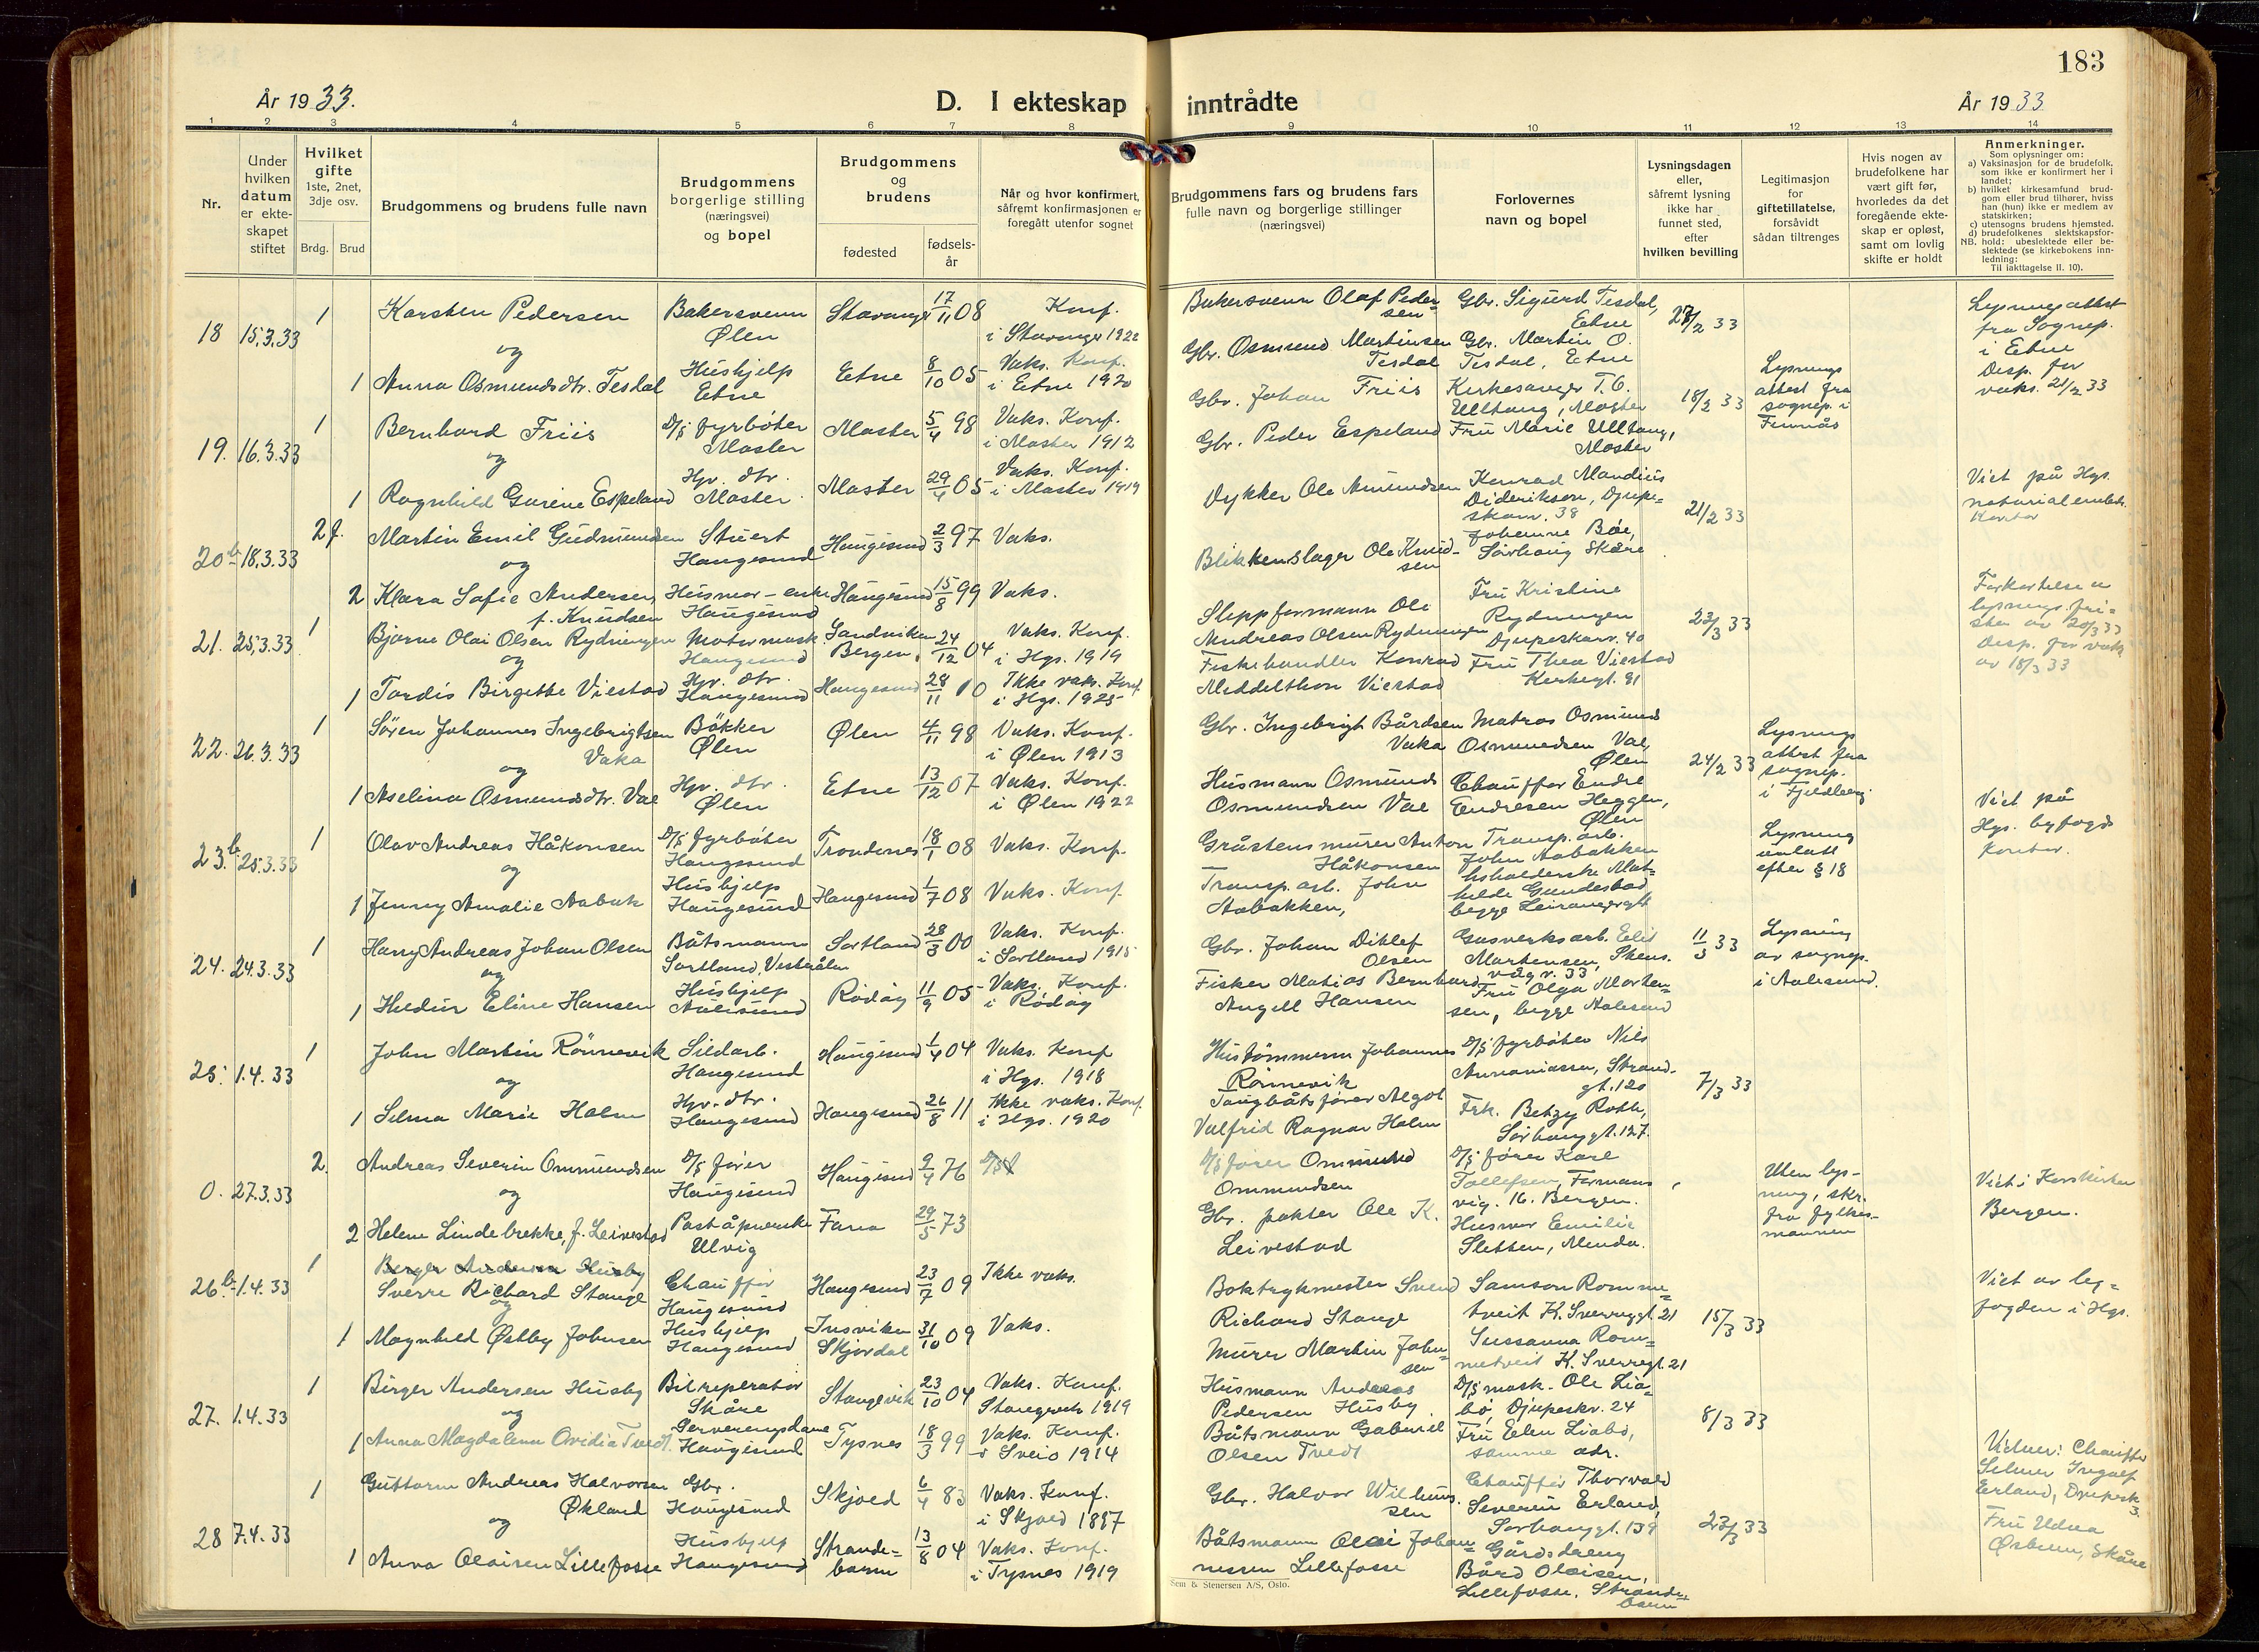 183
År 1933.
D. I ekteskap inntrådte
År 1933
1 2 3 4 5 6 7 8 9 10 11 12 13 14
Nr.
Under hvilken datum er ekteskapet stiftet
Hvilket gifte
1ste, 2net, 3dje osv.
Brdg. Brud
Brudgommens og brudens fulle navn
Brudgommens borgerlige stilling (næringsvei) og bopel
Brudgommens og brudens
fødested
fødsels-år
Når og hvor konfirmert, såfremt konfirmasjonen er foregått utenfor sognet
Brudgommens fars og brudens fars fulle navn og borgerlige stillinger (næringsvei)
Forlovernes navn og bopel
Lysningsdagen eller, såfremt lysning ikke har funnet sted, efter hvilken bevilling
Legitimasjon for giftetillatelse, forsåvidt sådan tiltrenges
Hvis nogen av brudefolkene har vært gift før, hvorledes da det foregående ekteskap er opløst, samt om lovlig skifte er holdt
Anmerkninger.
Som oplysninger om:
a) Vaksinasjon for de brudefolk, som ikke er konfirmert her i landet;
b) hvilket kirkesamfund brudgom eller brud tilhører, hviss han (hun) ikke er medlem av statskirken;
c) utensogns brudens hjemsted.
d) brudefolkenes slektskapsfor-
NB. hold: ubeslektede eller beslektede (se kirkebokens innledning:
Til iakttagelse II. 10).
18 15.3.33
1 Karsten Pedersen Bakersvenn Ølen Stavanger 17/11 08 Konf. i Stavanger 1922
og
1 Anna Osmundsdtr. Tesdal Hushjelp Etne Etne 8/10 05 Vaks. Konf. i Etne 1920
Bakersvenn Olaf Pedersen
Gbr. Osmund Martinsen Tesdal
Gbr. Sigurd Tesdal, Etne
Gbr. Martin O. Tesdal, Etne
27/2 33
Lysningsattest fra Sognep. i Etne
Desp. for vaks. 21/2 33
19. 16.3.33
1 Bernhard Friis D/s fyrbøter Moster Moster 5/4 98 Vaks. Konf. i Moster 1912
og
1 Ragnhild Gurine Espeland Hjv. dtr. Moster Moster 29/4 05 Vaks. Konf. i Moster 1919
Gbr. Johan Friis
Gbr. Peder Espeland
Kirkesanger T. G. Ulltang, Moster
Fru Marie Ulltang, Moster
18/2 33
Lysnings attest fra sognep. i Finnås
20b 18.3.33
2 f. Martin Emil Gudmundsen Stuert Haugesund Haugesund 2/3 97 Vaks.
og
2 Klara Sofie Andersen, f. Knudsen Husmor - enke Haugesund Haugesund 15/8 99 Vaks.
Dykker Ole Amundsen
Blikkenslager Ole Knudsen
Konrad Mandius Dideriksen, Djupeskarv. 38
Johanne Bøe, Sørhaug Skåre
21/2 33
Viet på Hgs. notarialembets Kontor
21. 25.3.33
1 Bjarne Olai Olsen Rydningen Motormask. Haugesund Sandviken Bergen, 24/12 04 Vaks. Konf. i Hgs. 1919
og
1 Tordis Birgitte Viestad Hjv. dtr. Haugesund Haugesund 28/11 10 Ikke vaks. Konf. i Hgs. 1925
Sleppformann Ole Andreas Olsen Rydningen
Fiskehandler Konrad Meddelthon Viestad
Fru Kristine Rydningen Djupeskarv. 40
Fru Thea Viestad Kirkegt. 91
23/3 33
Forkortelse av lysnings fristen av 20/3 33
Desp. for vaks av 18/3 33
22. 26.3.33
1 Søren Johannes Ingebrigtsen Vaka Bøkker Ølen Ølen 4/11 98 Vaks. Konf. i Ølen 1913
og
1 Aselina Osmundsdtr. Vae Hjv. dtr. Ølen Etne 13/12 07 Vaks. Konf. i Ølen 1922
Gbr. Ingebrigt Bårdsen Vaka
Husmann Osmund Osmundsen Vae
Matros Osmund Osmundsen Vae, Ølen
Chauffør Endre Endresen Heggen, Ølen
24/2 33
Lysnings attest fra sognep. i Fjeldberg.
23.b 25.3.33
1 Olav Andreas Håkonsen D/s fyrbøter Haugesund Trondenes 18/1 08 Vaks. Konf.
og
1 Jenny Amalie Aabak Hushjelp Haugesund Haugesund 1/7 08 Vaks. Konf
Gråstensmurer Anton Håkonsen
Transp. arb. John Aabakken,
Transp. arb. John Aabakken
Husholderske Mathilde Gundestad begge Leirangergt
Lysning unlatt efter § 18
Viet på Hgs. byfogds Kontor.
24. 24.3.33
1 Harry Andreas Johan Olsen Båtsmann Sortland, Vesterålen Sortland 28/3 00 Vaks. Konf. i Sortland 1915
og
1 Heldur Eline Hansen Hushjelp Aalesund Rødøy 11/9 05 Vaks. Konf. i Rødøy
Gbr. Johan Ditlef Olsen
Fisker Matias Bernhard Angell Hansen
Gasverksarb. Elis Martensen, Skens. vegv. 33
Fru Olga Martensen, begge Aalesund
11/3 33
Lysning av sognep. i Aalesund.
25. 1.4.33
1 John Martin Rönnevik Sildarb. Haugesund Haugesund 1/4 04 Vaks. Konf i Hgs. 1918
og
1 Selma Marie Holm Hjv. dtr. Haugesund Haugesund 26/8 11 Ikke vaks. Konf. i Hgs. 1920
Hustømmerm Johannes Rönnevik
Taugbåtsfører Algot Valfrid Ragnar Holm
D/s fyrbøter Nils Annaniassen, Strandgt. 120
Frk. Betzy Roth, Sørhauggt. 127.
7/3 33
0. 27.3.33
2. Andreas Severin Ommundsen D/s fører Haugesund Haugesund 9/4 76
og
2 Helene Lindebrekke, f. Leivestad Poståpnerske Ulvig Fana 29/5 73
D/s fører Ommund Ommundsen
Gbr. pakter Ole K. Leivestad
D/s fører Karl Tollefsen, Formanns vig. 16. Bergen.
Husmor Emilie Sletten, Menda.
Uten lysning, skr. fra fylkesmannen
Viet i Korskirken Bergen.
26b 1.4.33
1 Berger Andersen Husby
Sverre Richard Stange Chauffør Haugesund Haugesund 23/7 09 Ikke vaks.
og
1 Magnhild Østby Johnsen Hushjelp Haugesund Insviken Skjordal 31/10 09 Vaks.
Boktrykmester Svend Richard Stange
Murer Martin Johnsen
Samson Rommetveit K. Sverregt. 21
Sussanna Rommetveit K. Sverregt. 21
15/3 33
Viet av byfogden i Hgs.
27. 1.4.33
1 Birger Andersen Husby Bilreperatør Skåre Stangvik 23/10 04 Vaks. Konf. Stangvik 1919
og
1 Anna Magdalena Ovidia Tvedt Serveringsdame Haugesund Tysnes 18/3 99 Vaks. Konf. i Sveio 1914
Husmann Andreas Pedersen Husby
Båtsmann Gabriel Olsen Tvedt
D/s mask. Ole Liabø, Djupeskv. 24
Fru Elen Liabø, samme adr.
8/3 33
28 7.4.33
1 Guttorm Andreas Halvorsen Økland Gbr. Haugesund Skjold 6/4 83 Vaks. Konf. i Skjold 1897
og
1 Anna Olaisen Lillefosse Hushjelp Haugesund Strandebarm 13/8 04 Vaks. Konf. i Tysnes 1919
Gbr. Halvor Wilhumsen
Båtsmann Olai Johannessen Lillefosse
Chauffør Thorvald Severin Erland, Sørhauggt. 139
Gårdsdreng Bård Olaisen, Lillefosse. Strandebarm
23/3 33
Vitner: Chauffør Selmer Ingolf Erland, Djupesk. 3.
Fru Udna Østrem, Skåre
Sem & Stenersen A/S, Oslo.